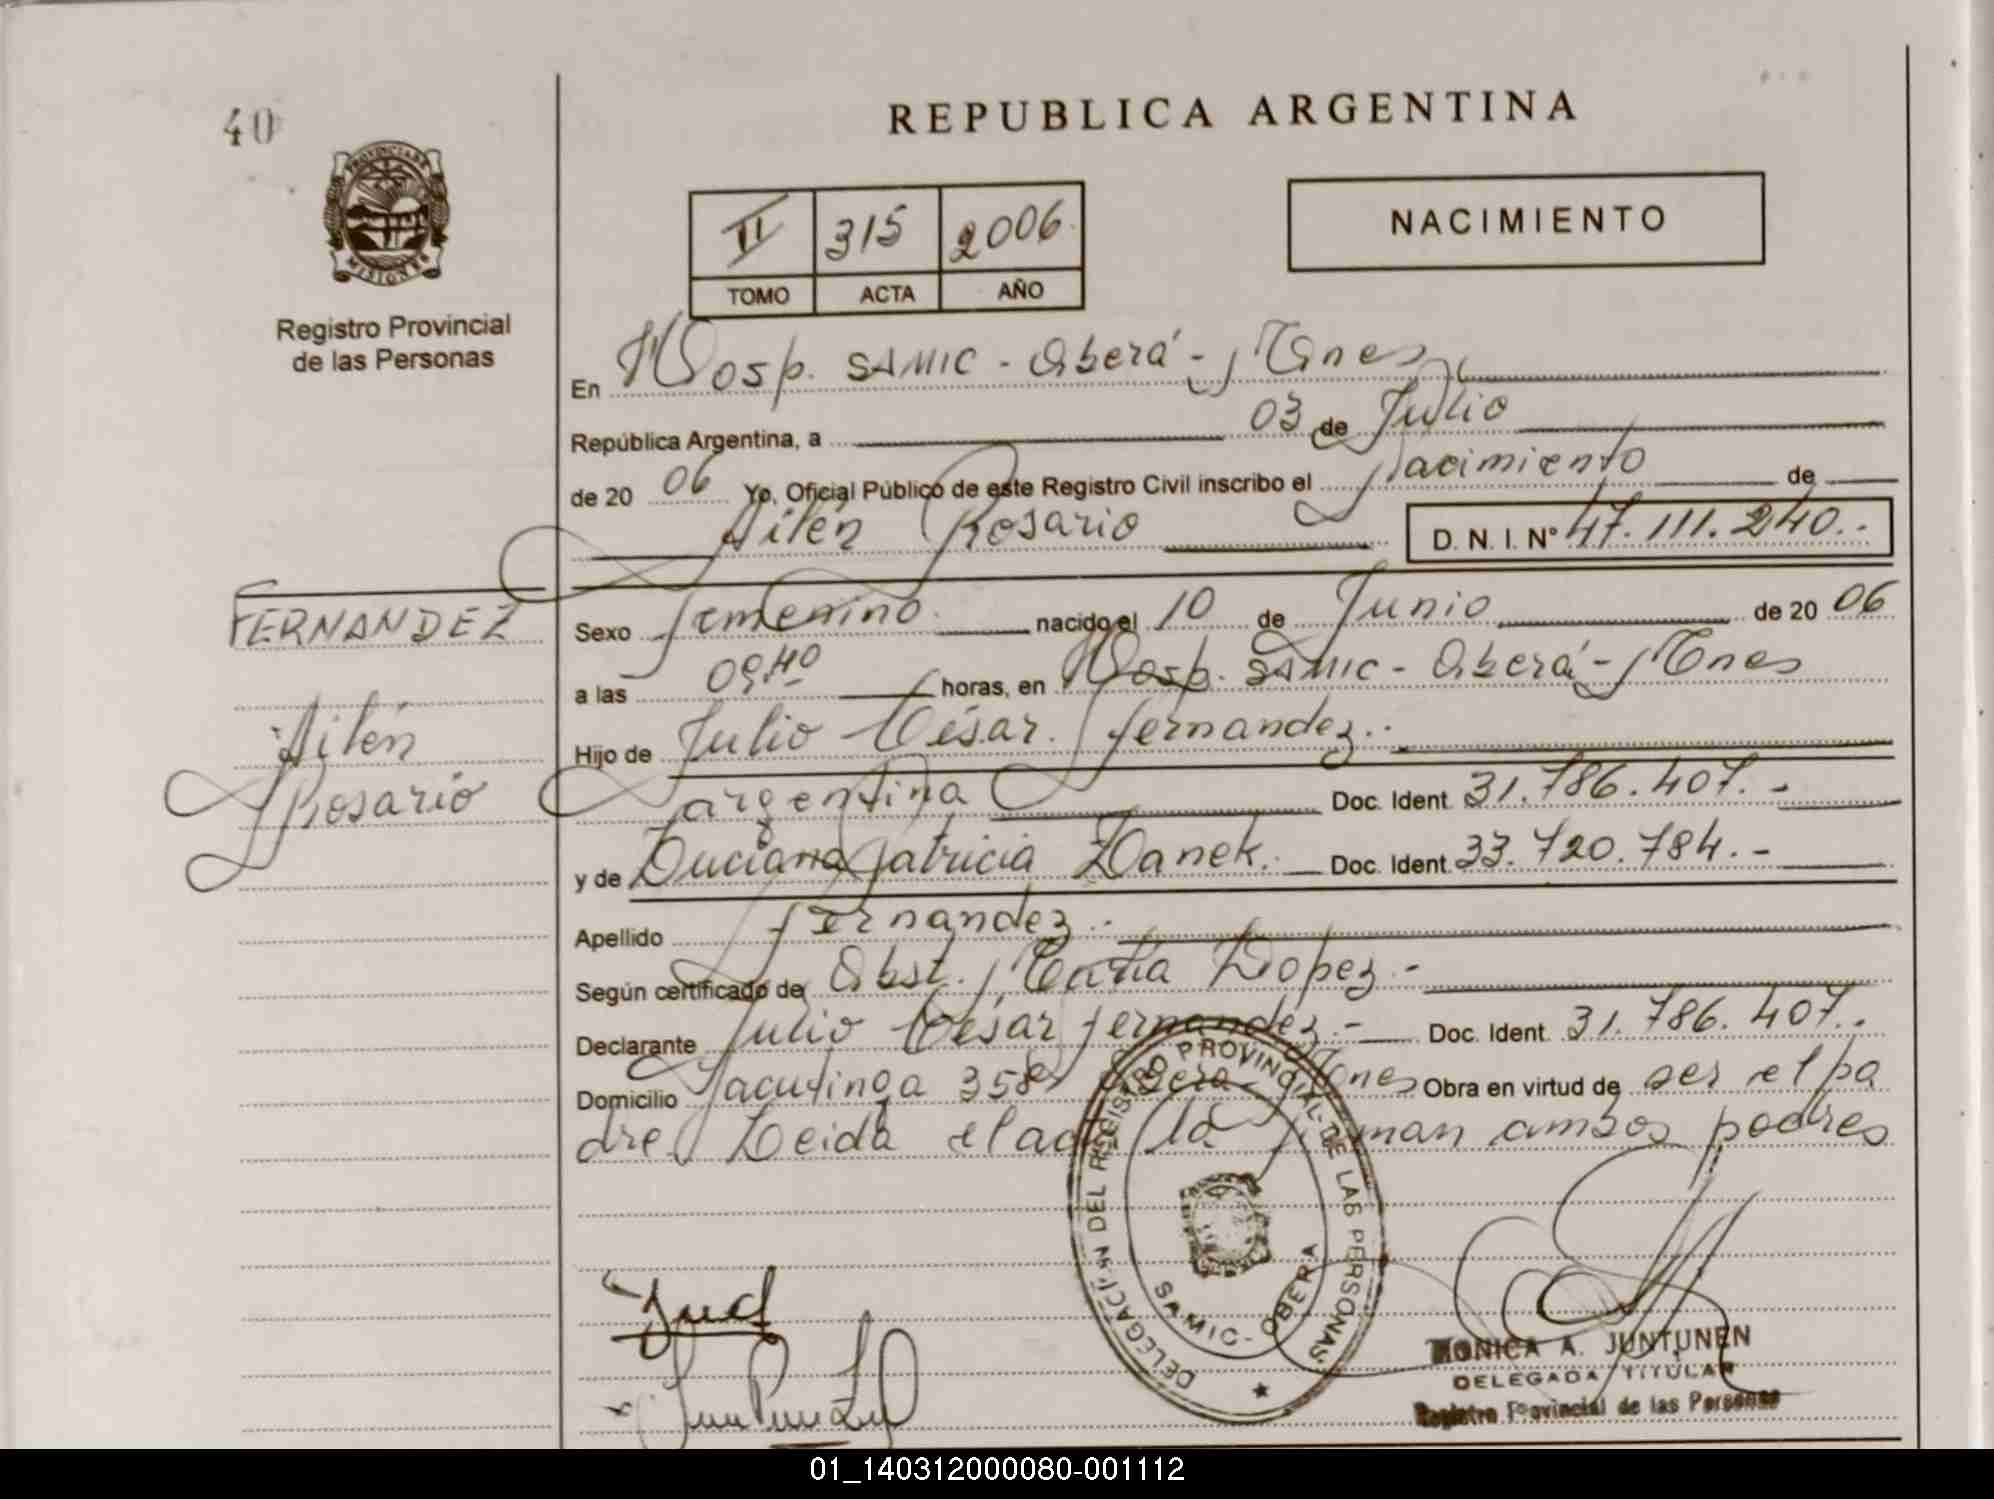 40
REPUBLICA ARGENTINA
PROVINCIA DE MISIONES
Registro Provincial
de las Personas
II 315 2006
TOMO ACTA AÑO
NACIMIENTO
En Hosp. SAMIC - Oberá - Mnes
República Argentina, a 03 de Julio
de 20 06 Yo, Oficial Público de este Registro Civil inscribo el Nacimiento de
Ailén Rosario D. N. I. N° 47.111.240.-
FERNANDEZ
Ailén
Rosario
Sexo femenino nacido el 10 de Junio de 20 06
a las 09,40 horas, en Hosp. SAMIC - Oberá - Mnes
Hijo de Julio César Fernandez.-
argentina Doc. Ident. 31.786.407.-
y de Luciana Patricia Zanek. Doc. Ident. 33.720.784.-
Apellido Fernandez.-
Según certificado de Obst. Lopez.-
Declarante Julio César Fernandez.- Doc. Ident. 31.786.407.-
Domicilio Yacutinga 358 Oberá Mnes Obra en virtud de ser el pa
dre Leida el acta la firman ambos padres
DELEGACIÓN DEL REGISTRO PROVINCIAL DE LAS PERSONAS
SAMIC - OBERA
MONICA A. JUNTUNEN
DELEGADA TITULAR
Registro Provincial de las Personas
01_140312000080-001112